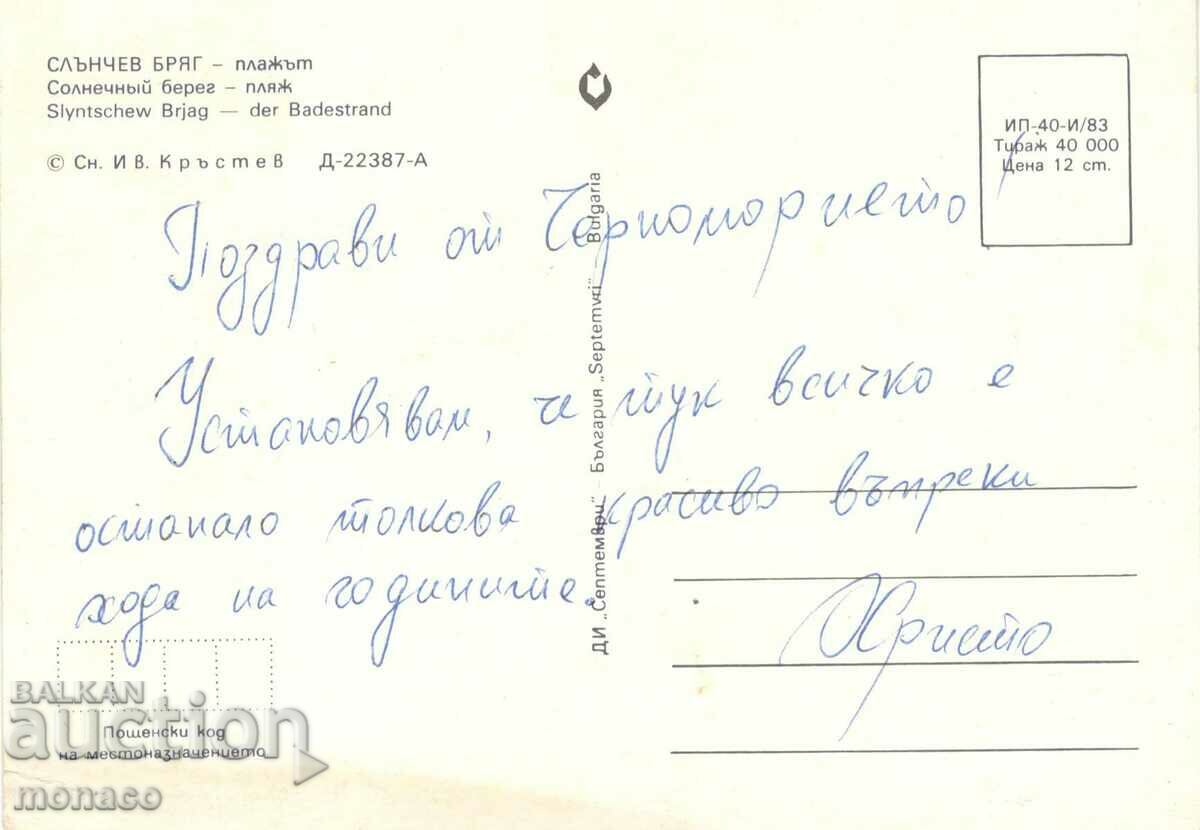 СЛЪНЧЕВ БРЯГ – плажът
Солнечный берег – пляж
Slyntschew Brjag — der Badestrand
© Сн. Ив. Кръстев Д-22387-А
ИП-40-И/83
Тираж 40 000
Цена 12 ст.
Поздрави от Черноморието!
Установявам, че тук всичко е
останало толкова красиво въпреки
хода на годините.
Христо
ДИ „Септември" – България „Septemvri" Bulgaria
Пощенски код
на местоназначението
BALKAN
auction
monaco